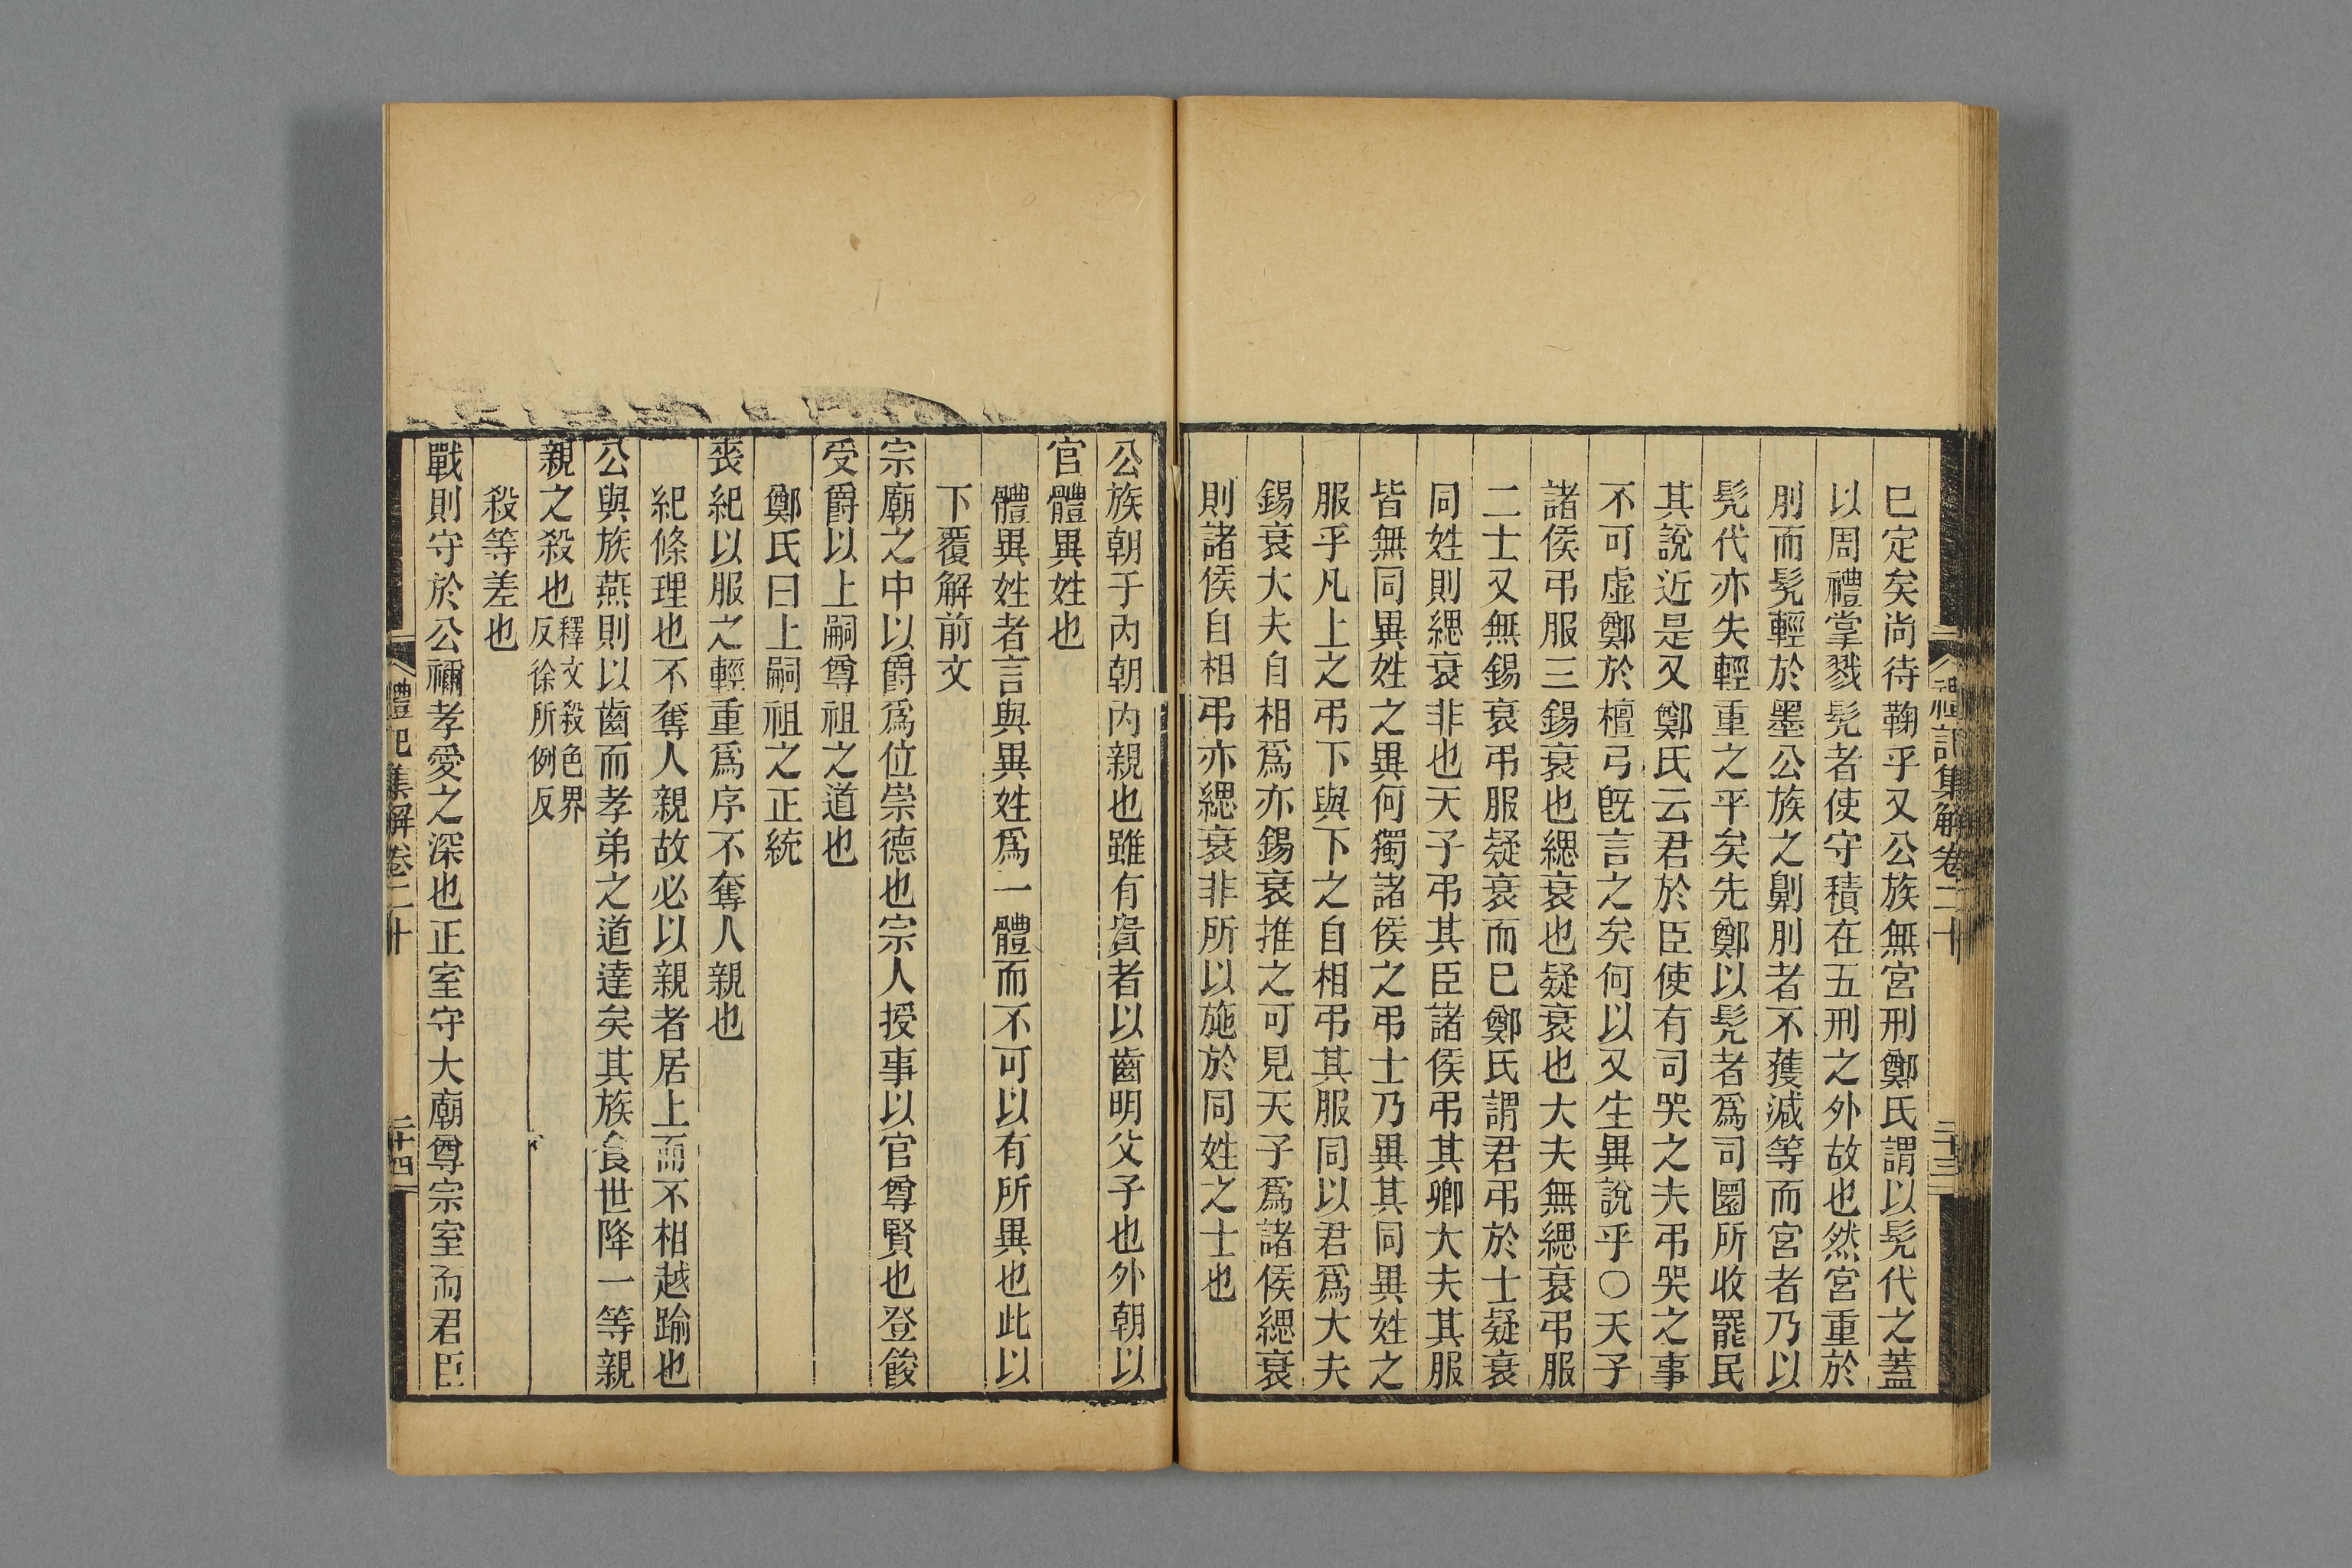 禮記集解卷二十
二十三
巳定矣尚待鞠乎又公族無宮刑鄭氏謂以髡代之蓋
以周禮掌戮髡者使守積在五刑之外故也然宮重於
刖而髡輕於墨公族之劓刖者不獲減等而宮者乃以
髡代亦失輕重之平矣先鄭以髡者爲司圜所收罷民
其說近是又鄭氏云君於臣使有司哭之夫弔哭之事
不可虛鄭於檀弓旣言之矣何以又生異說乎〇天子
諸侯弔服三錫衰也緦衰也疑衰也大夫無緦衰弔服
二士又無錫衰弔服疑衰而巳鄭氏謂君弔於士疑衰
同姓則緦衰非也天子弔其臣諸侯弔其卿大夫其服
皆無同異姓之異何獨諸侯之弔士乃異其同異姓之
服乎凡上之弔下與下之自相弔其服同以君爲大夫
錫衰大夫自相爲亦錫衰推之可見天子爲諸侯緦衰
則諸侯自相弔亦緦衰非所以施於同姓之士也
公族朝于內朝內親也雖有貴者以齒明父子也外朝以
官體異姓也
體異姓者言與異姓爲一體而不可以有所異也此以
下覆解前文
宗廟之中以爵爲位崇德也宗人授事以官尊賢也登餕
受爵以上嗣尊祖之道也
鄭氏曰上嗣祖之正統
喪紀以服之輕重爲序不奪人親也
紀條理也不奪人親故必以親者居上而不相越踰也
公與族燕則以齒而孝弟之道達矣其族食世降一等親
親之殺也釋文殺色界反徐所例反
殺等差也
戰則守於公禰孝愛之深也正室守大廟尊宗室而君臣
禮記集解卷二十
二十四